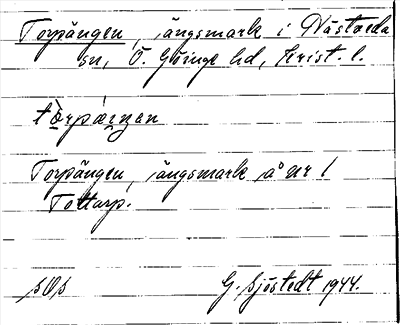 Torpängen, ängsmark i Nästveda
sn, Ö. Göinge hd, Krist. l.
tòrpæŋen
Torpängen, ängsmark å nr 1
Tottarp.
sOs G. Sjöstedt 1944.